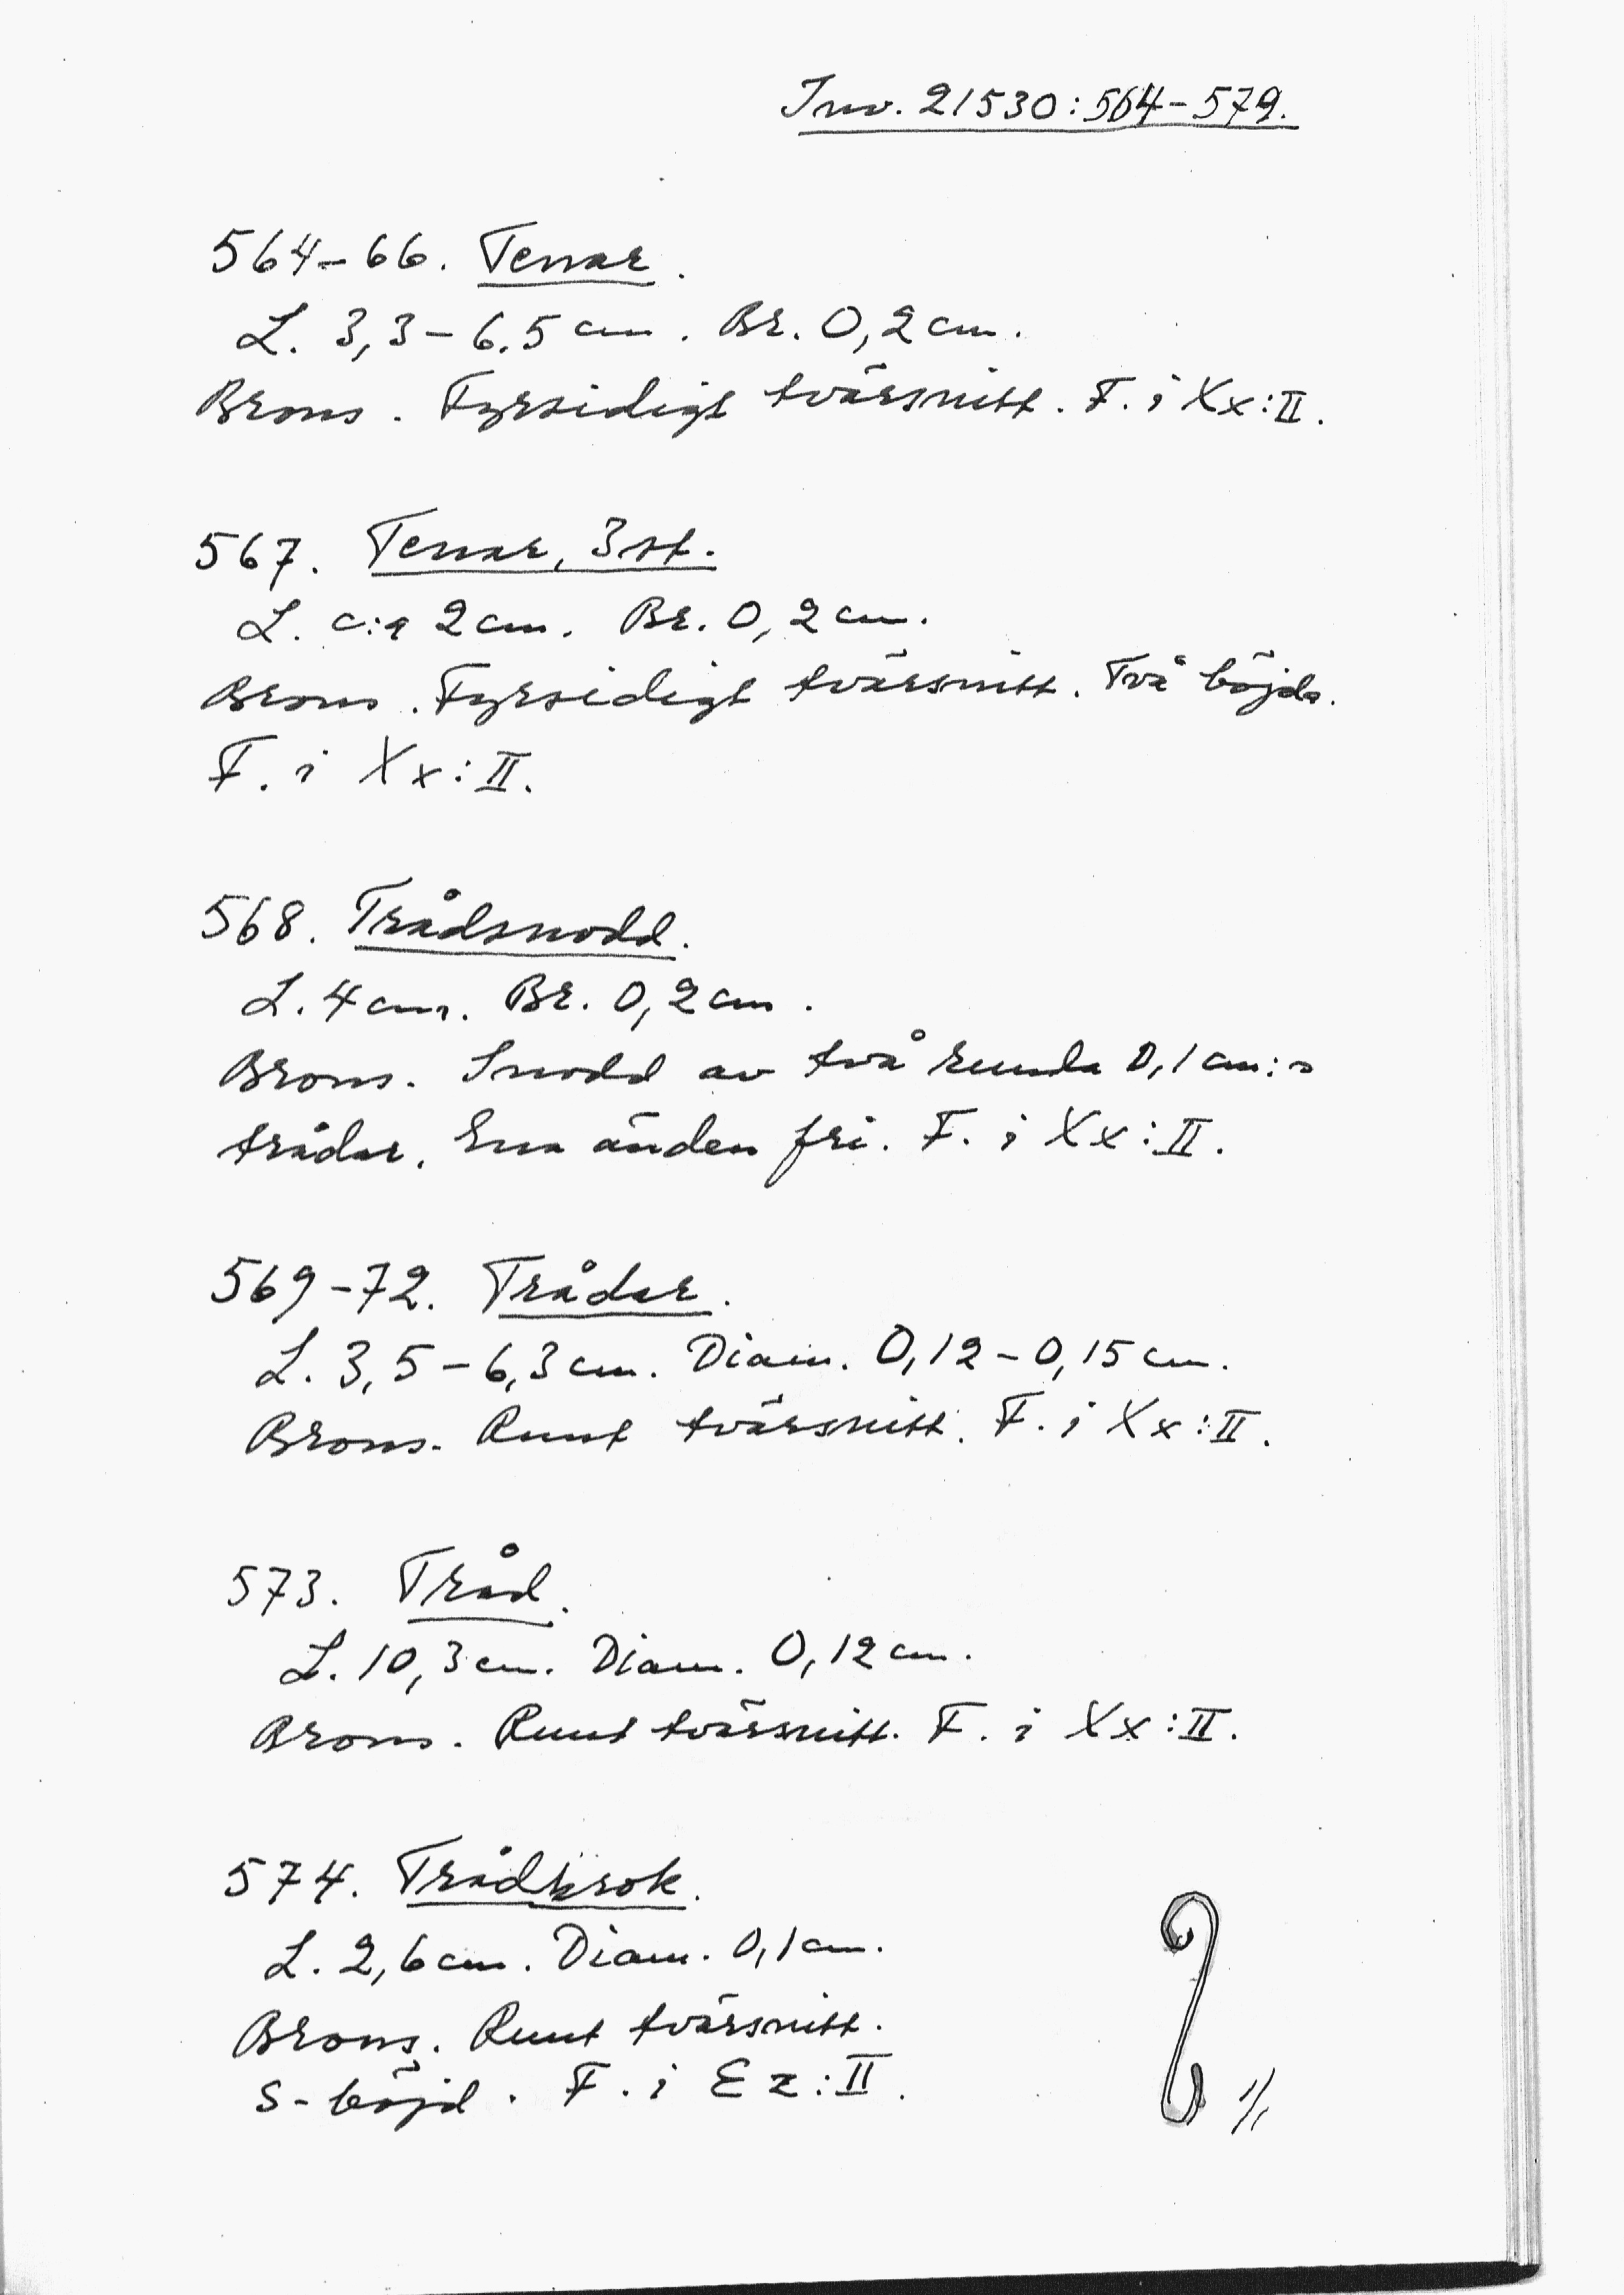 Inv. 21530:564-579.
564-66. Tenar.
L. 3,3-6,5 cm. Br. 0,2 cm.
Brons. Fyrsidigt tvärsnitt. F. i Xx:II.
567. Tenar, 3 st.
L. c:a 2 cm. Br. 0,2 cm.
Brons. Fyrsidigt tvärsnitt. Två böjda.
F. i Xx:II.
568. Trådsnodd.
L. 4 cm. Br. 0,2 cm.
Brons. Snodd av två runda 0,1 cm:s
trådar. Ena änden fri. F. i Xx:II.
569-72. Trådar.
L. 3,5-6,3 cm. Diam. 0,12-0,15 cm.
Brons. Runt tvärsnitt. F. i Xx:II.
573. Tråd.
L. 10,3 cm. Diam. 0,12 cm.
Brons. Runt tvärsnitt. F. i Xx:II.
574. Trådkrok.
L. 2,6 cm. Diam. 0,1 cm.
Brons. Runt tvärsnitt.
S-böjd. F. i Ez:II.
1/1